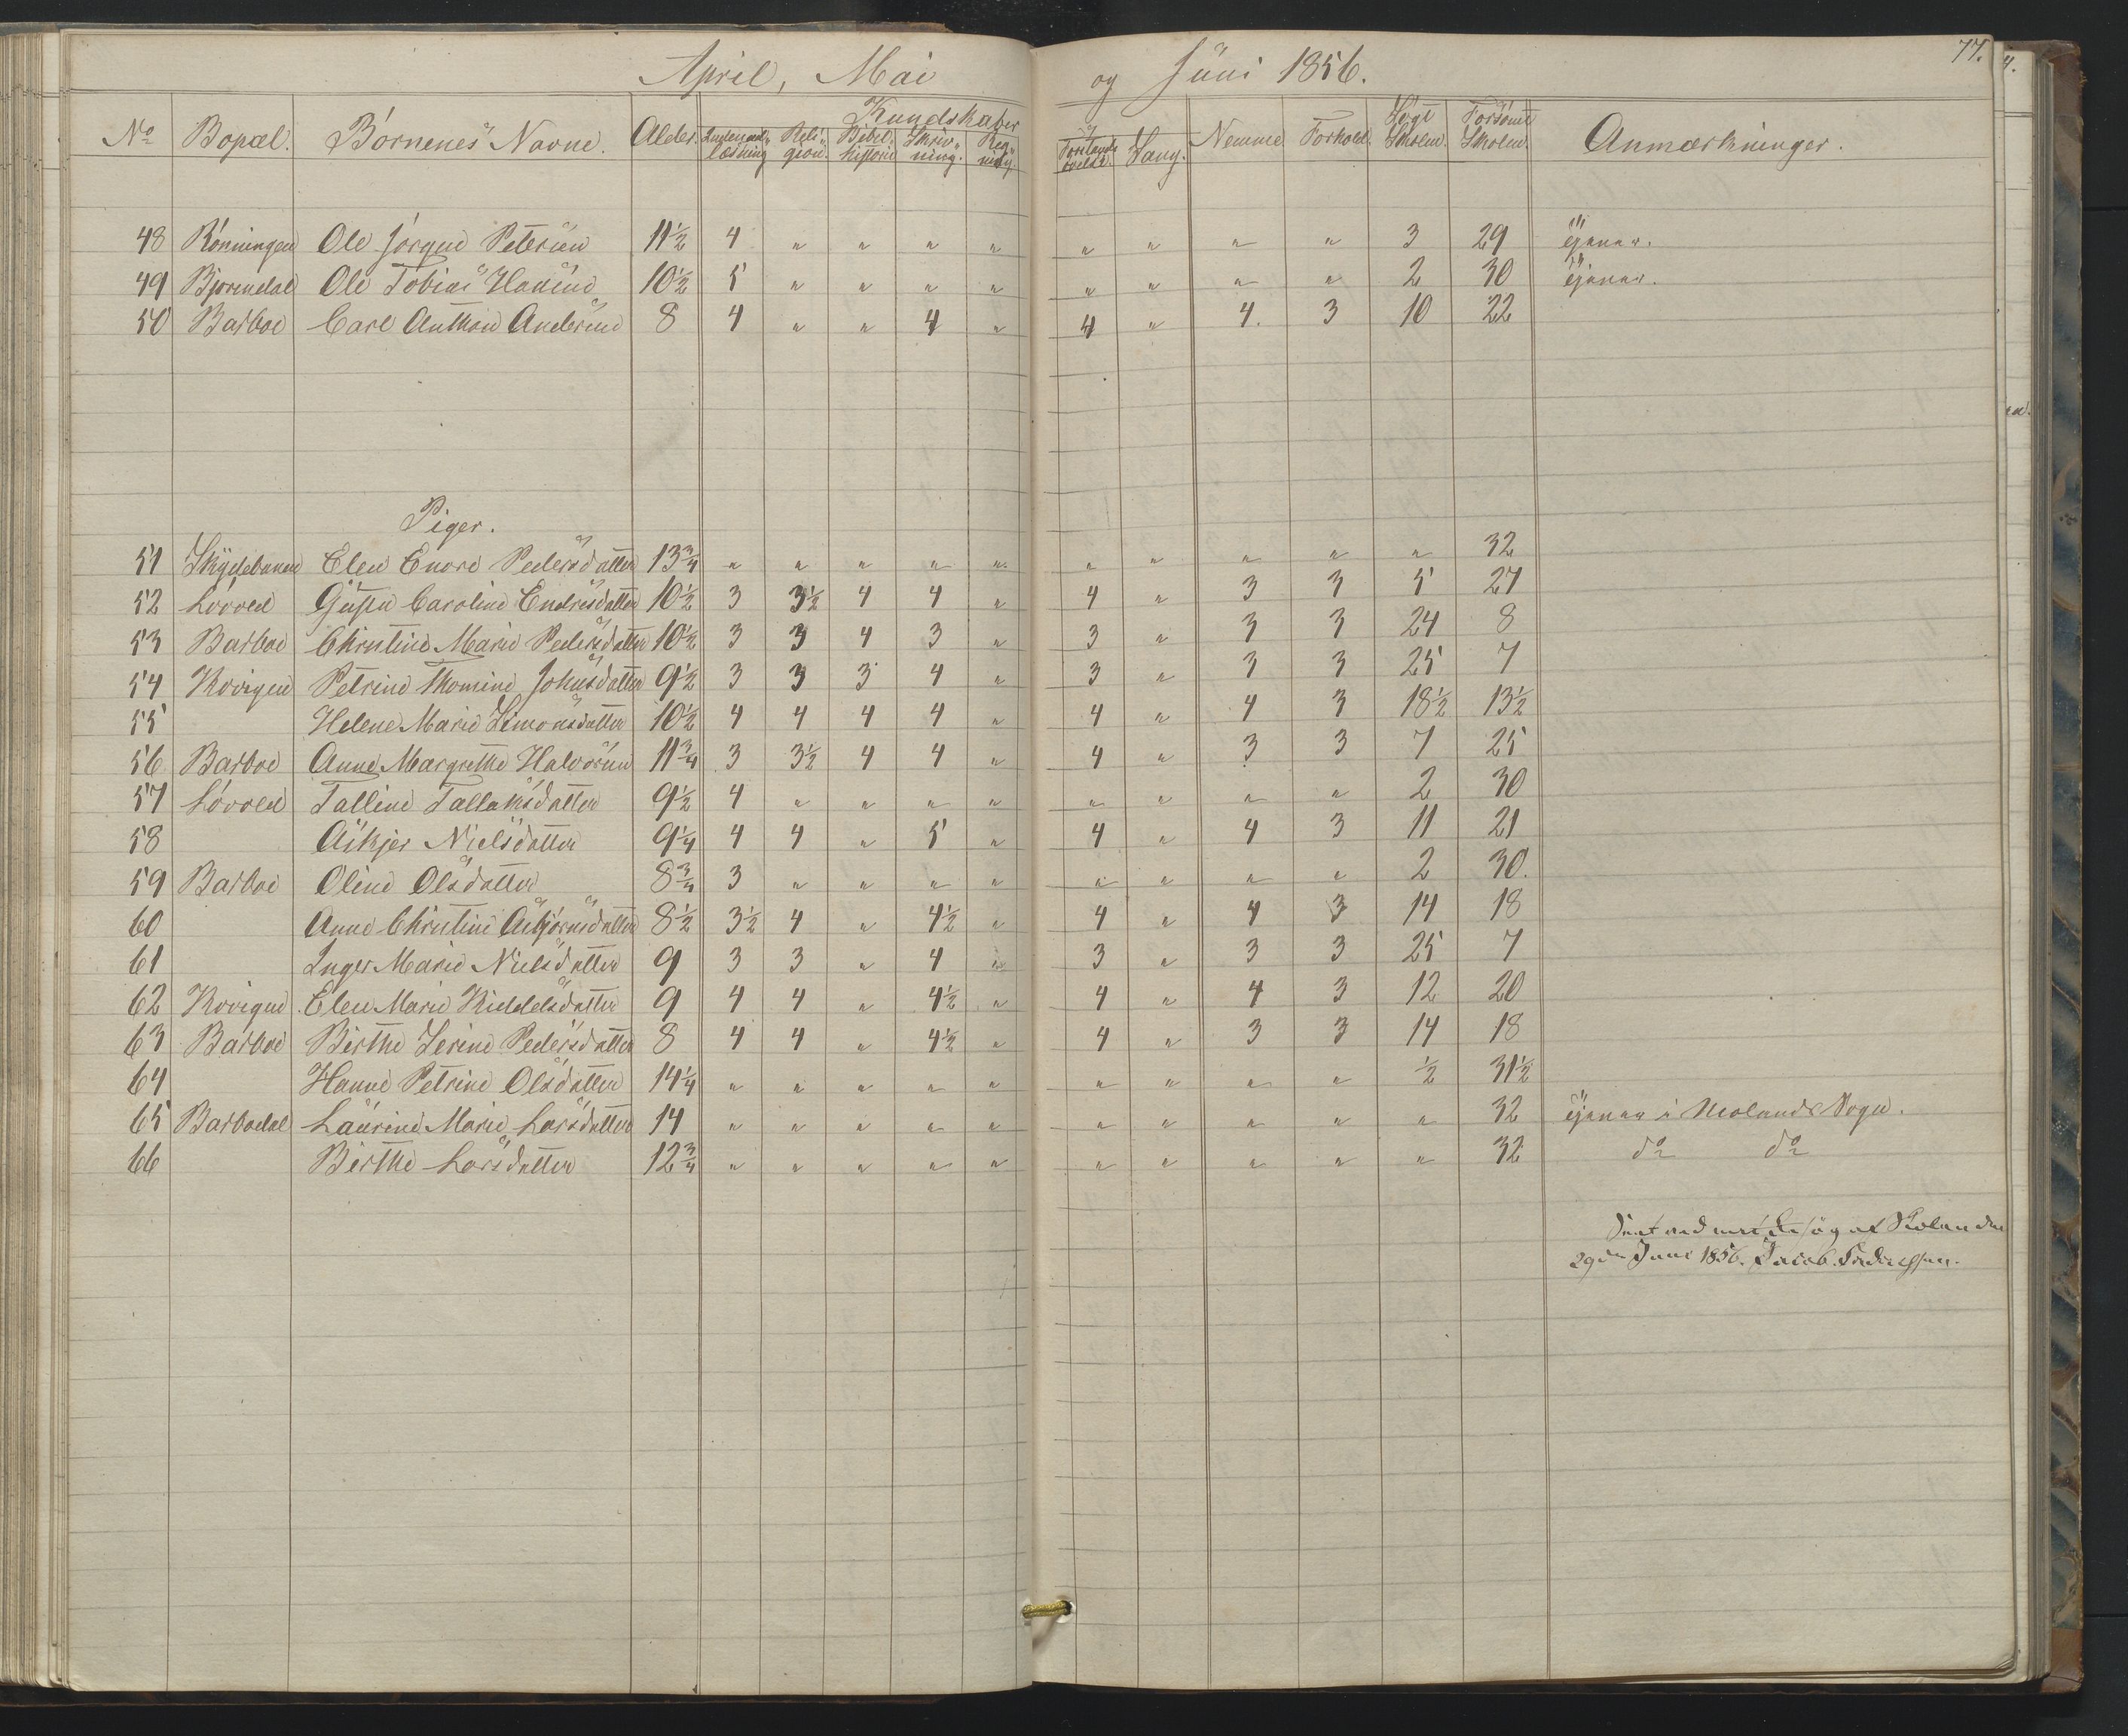 April, Mai og Juni 1856. 77.
Kundskaber
No Bopæl. Børnenes Navne. Alder. Indenad-læsning Reli-gion. Bibel-historie Skriv-ning. Reg-ning. Forstands-øvelse. Sang. Nemme Forhold. Søgt Skolen. Forsømt Skolen. Anmærkninger.
48 Rønningen Ole Jørgine Petersen 11½ 4 " " " " " " " " 3 29 tjener.
49 Bjorendal Ole Tobias Hansen 10½ 5 " " " " " " " " 2 30 tjener.
50 Barboe Carl Anthon Andersen 8 4 " " 4 " 4 " 4. 3 10 22
Piger.
51 Skydebanen Elen Enore Pedersdatter 13¾ " " " " " " " " " " 32
52 Løvold Gusta Caroline Endresdatter 10½ 3 3½ 4 4 " 4 " 3 3 5 27
53 Barboe Christine Marie Pedersdatter 10½ 3 3 4 3 " 3 " 3 3 24 8
54 Krøigen Petrine Thomine Johnsdatter 9½ 3 3 3 4 " 3 " 3 3 25 7
55 Helene Marie Simonsdatter 10½ 4 4 4 4 " 4 " 4 3 18½ 13½
56 Barboe Anne Margrethe Halvorsen 11¾ 3 3½ 4 4 " 4 " 3 3 7 25
57 Løvold Talline Tallaksdatter 9½ 4 " " " " " " " " 2 30
58 Askjer Nielsdatter 9¼ 4 4 " 5 " 4 " 4 3 11 21
59 Barboe Oline Olsdatter 8¾ 3 " " " " " " " " 2 30.
60 Anne Christine Asbjørnsdatter 8½ 3½ 4 " 4½ " 4 " 4 3 14 18
61 Inger Marie Nielsdatter 9 3 3 " 4 " 3 " 3 3 25 7
62 Krøigen Elen Marie Kiddelsdatter 9 4 4 " 4½ " 4 " 4 3 12 20
63 Barboe Birthe Serine Pedersdatter 8 4 4 " 4½ " 4 " 3 3 14 18
64 Hanne Petrine Olsdatter 14¼ " " " " " " " " " ½ 31½
65 Barbodal Laurine Marie Larsdatter 14 " " " " " " " " " " 32 tjener i Molands Sogn.
66 Birthe Larsdatter 12¾ " " " " " " " " " " 32 do do
Seet ved mit Besøg af Skolen den
29de Juni 1856. Jacob